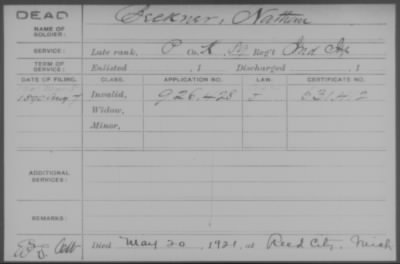 DEAD
NAME OF SOLDIER: Beckner, Nathan
SERVICE: Late rank, P Co. K, Reg't Ind Inf
TERM OF SERVICE: Enlisted , 1 Discharged , 1
DATE OF FILING. CLASS. APPLICATION NO. LAW. CERTIFICATE NO.
1890 Aug 7 Invalid, 926.428
Widow,
Minor,
ADDITIONAL SERVICES:
REMARKS:
Died May 20, 1921, at Reed City, Mich